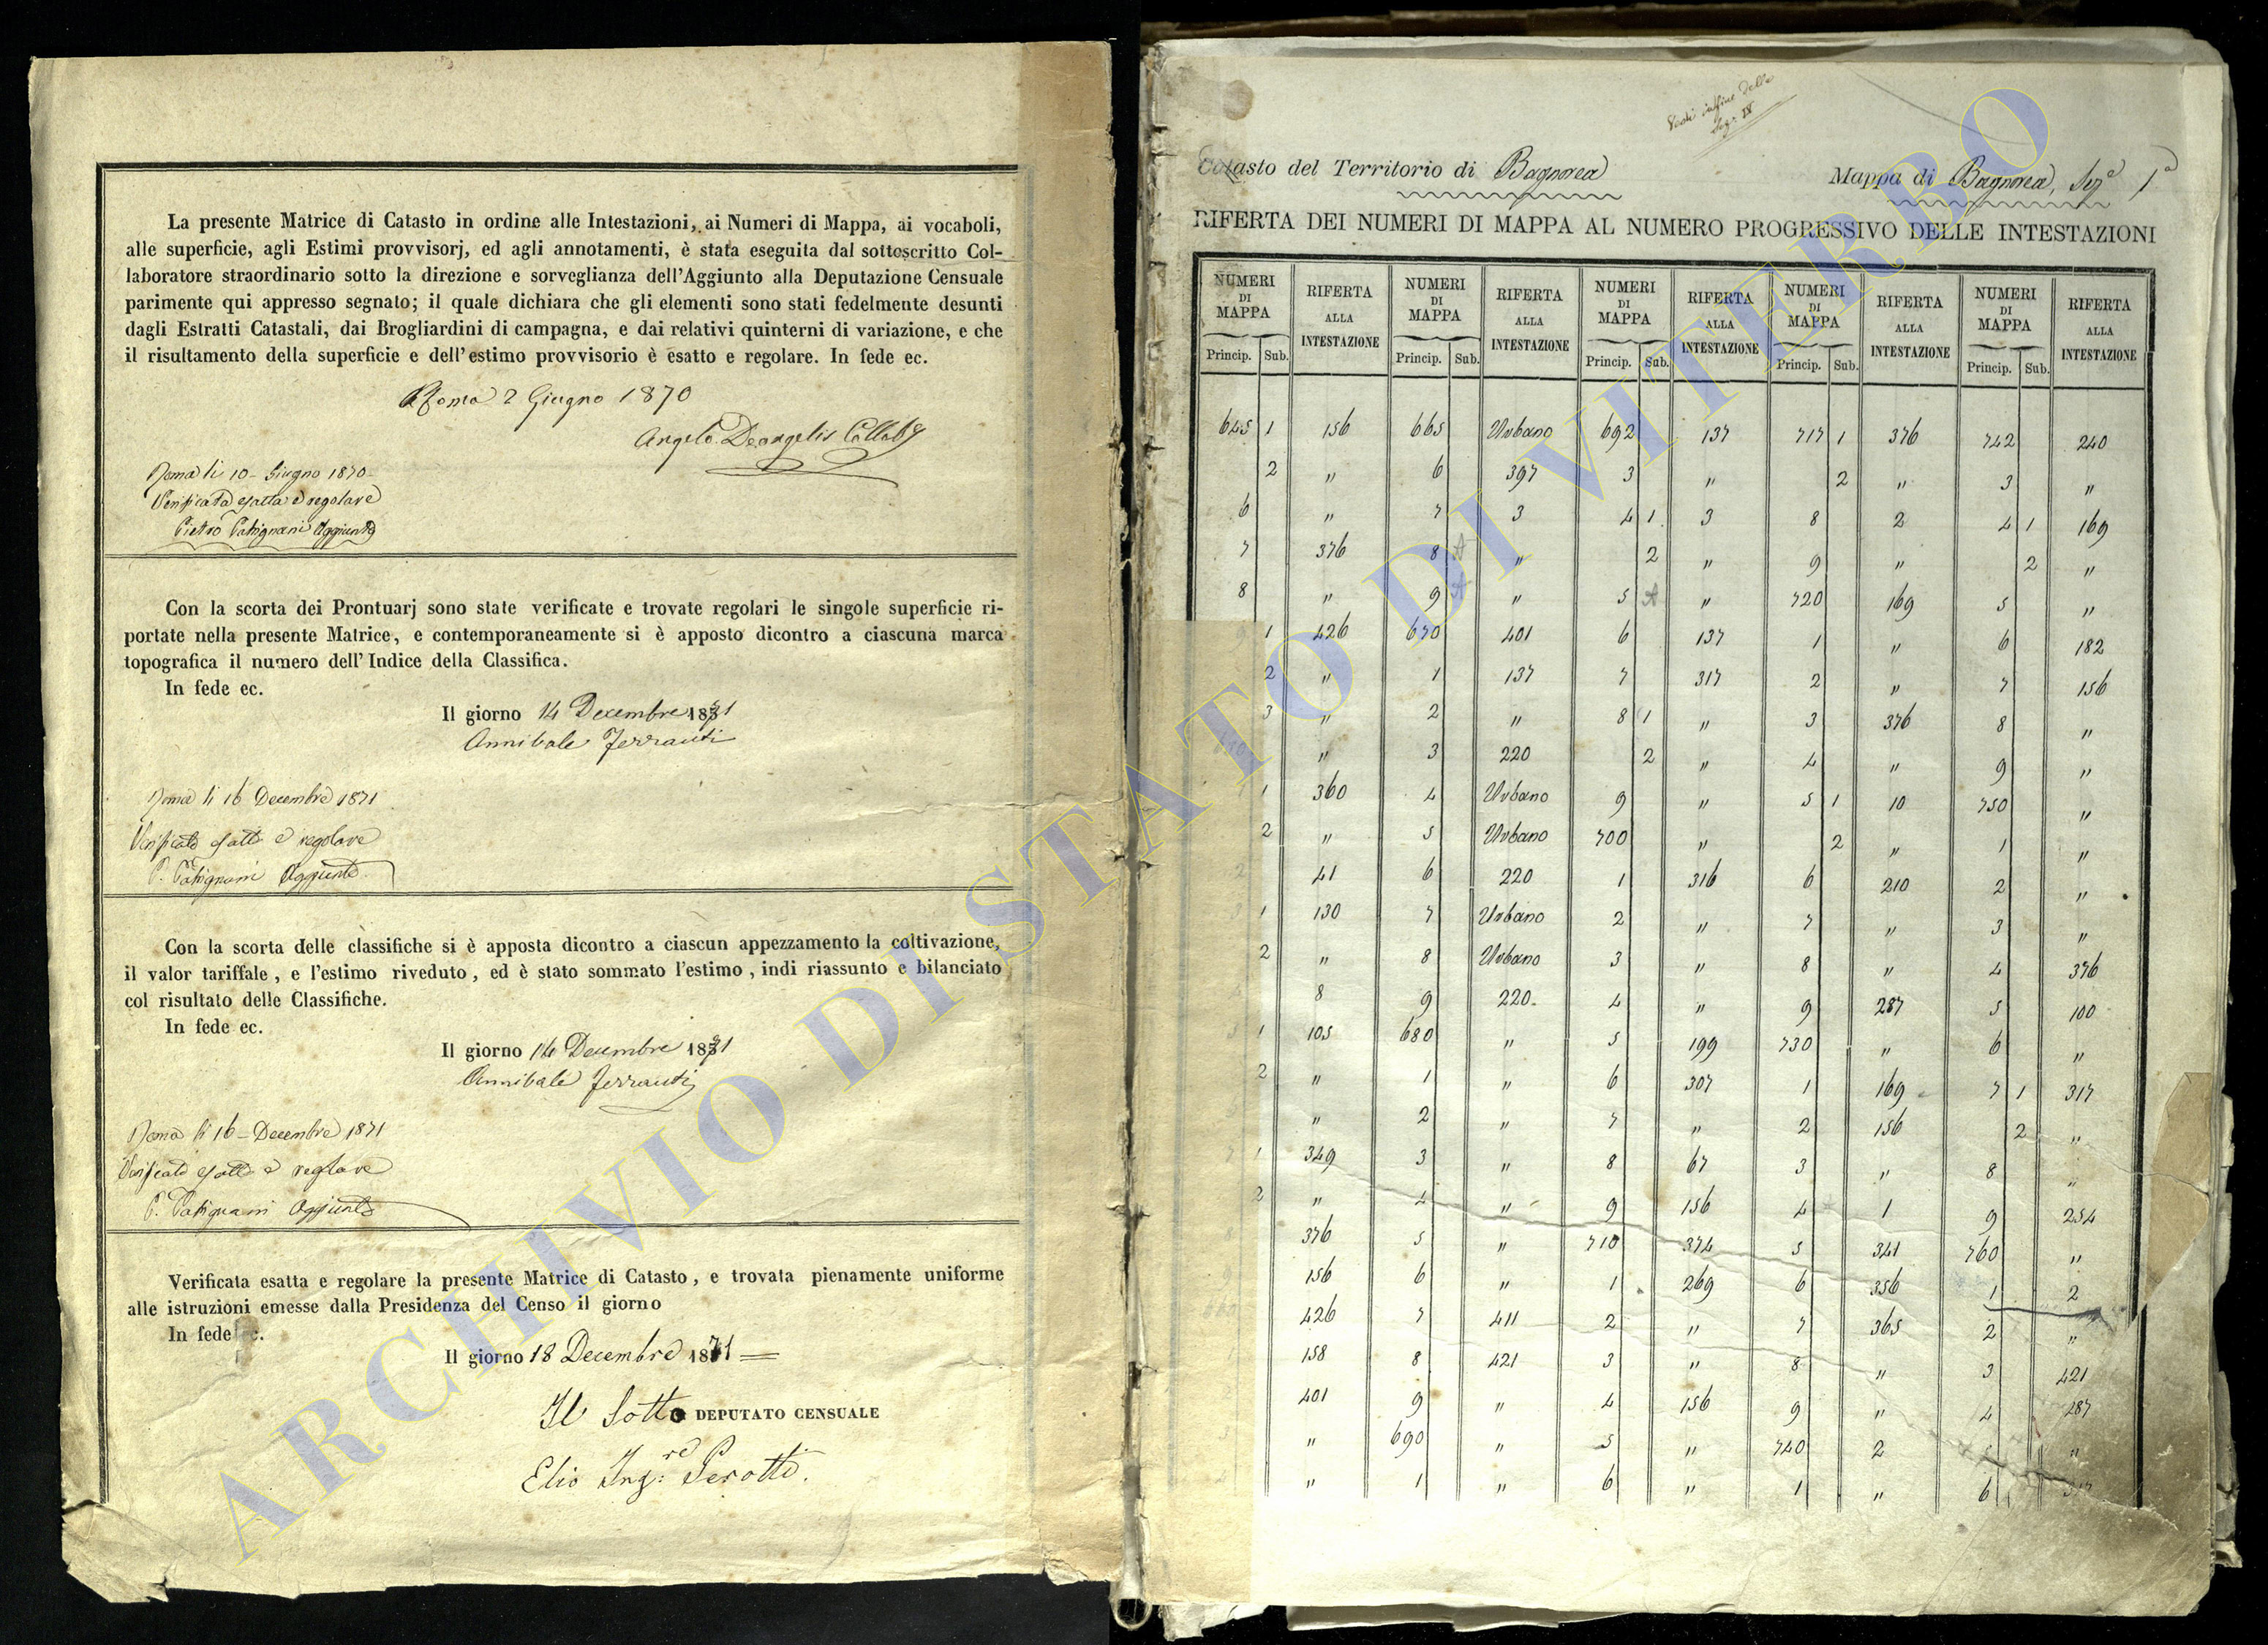 La presente Matrice di Catasto in ordine alle Intestazioni, ai Numeri di Mappa, ai vocaboli,
alle superficie, agli Estimi provvisorj, ed agli annotamenti, è stata eseguita dal sottoscritto Col-
laboratore straordinario sotto la direzione e sorveglianza dell'Aggiunto alla Deputazione Censuale
parimente qui appresso segnato; il quale dichiara che gli elementi sono stati fedelmente desunti
dagli Estratti Catastali, dai Brogliardini di campagna, e dai relativi quinterni di variazione, e che
il risultamento della superficie e dell'estimo provvisorio è esatto e regolare. In fede ec.
Roma 2 Giugno 1870
Angelo Deangelis Collab
Roma li 10 - Giugno 1870
Verificata esatta e regolare
Pietro Patrignani Aggiunto
Con la scorta dei Prontuarj sono state verificate e trovate regolari le singole superficie ri-
portate nella presente Matrice, e contemporaneamente si è apposto dicontro a ciascuna marca
topografica il numero dell'Indice della Classifica.
In fede ec.
Il giorno 14 Decembre 1871
Annibale Ferrauti
Roma li 16 Decembre 1871
Verificato esatto e regolare
P. Patrignani Aggiunto
Con la scorta delle classifiche si è apposta dicontro a ciascun appezzamento la coltivazione,
il valor tariffale, e l'estimo riveduto, ed è stato sommato l'estimo, indi riassunto e bilanciato
col risultato delle Classifiche.
In fede ec.
Il giorno 14 Decembre 1871
Annibale Ferrauti
Roma li 16 - Decembre 1871
Verificato esatto e regolare
P. Patrignani Aggiunto
Verificata esatta e regolare la presente Matrice di Catasto, e trovata pienamente uniforme
alle istruzioni emesse dalla Presidenza del Censo il giorno
In fede ec.
Il giorno 18 Decembre 1871
Il Sotto DEPUTATO CENSUALE
Elio Ing:re Perotti.
Vedi infine della
Sez. IV
Catasto del Territorio di Bagnorea Mappa di Bagnorea, Seze 1a
RIFERTA DEI NUMERI DI MAPPA AL NUMERO PROGRESSIVO DELLE INTESTAZIONI
NUMERI DI MAPPA RIFERTA ALLA INTESTAZIONE NUMERI DI MAPPA RIFERTA ALLA INTESTAZIONE NUMERI DI MAPPA RIFERTA ALLA INTESTAZIONE NUMERI DI MAPPA RIFERTA ALLA INTESTAZIONE NUMERI DI MAPPA RIFERTA ALLA INTESTAZIONE
Princip. Sub. Princip. Sub. Princip. Sub. Princip. Sub. Princip. Sub.
645 1 156 665 Urbano 692 137 717 1 376 742 240
2 " 6 397 3 " 2 " 3 "
6 " 7 3 4 1 3 8 2 4 1 169
7 376 8 A " 2 " 9 " 2 "
8 " 9 A " 5 A " 720 169 5 "
9 1 426 670 401 6 137 1 " 6 182
2 " 1 137 7 317 2 " 7 156
3 " 2 " 8 1 " 3 376 8 "
" 3 220 2 " 4 " 9 "
1 360 4 Urbano 9 " 5 1 10 750 "
2 " 5 Urbano 700 " 2 " 1 "
2 41 6 220 1 316 6 210 2 "
3 1 130 7 Urbano 2 " 7 " 3 "
2 " 8 Urbano 3 " 8 " 4 376
8 9 220 4 " 9 287 5 100
5 1 105 680 " 5 199 730 " 6 "
2 " 1 " 6 307 1 169 7 1 317
" 2 " 7 " 2 156 2 "
7 1 349 3 " 8 67 3 " 8 "
2 " 4 " 9 156 4 1 9 254
376 5 " 710 374 5 341 760 "
156 6 " 1 269 6 356 1 2
426 7 411 2 " 7 365 2 "
158 8 421 3 " 8 " 3 421
401 9 " 4 156 9 " 4 287
" 690 " 5 " 740 2 5 "
" 1 " 6 " 1 " 6
ARCHIVIO DI STATO DI VITERBO